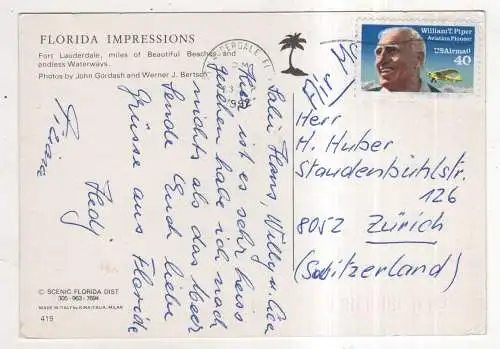 FLORIDA IMPRESSIONS
Fort Lauderdale, miles of Beautiful Beaches and
endless Waterways.
Photos by John Gordash and Werner J. Bertsch
Salu Hans, Willy u.
Hier ist es sehr heiss
gesehen habe ich noch
nichts als das Meer
sende Euch liebe
Grüsse aus Florida
Hedj
© SCENIC FLORIDA DIST
305-963-7694
MADE IN ITALY by KINA ITALIA, MILAN
415
LAUDERDALE FL
William T. Piper
Aviation Pioneer
USAirmail
40
Herr
H. Huber
Staudenbühlstr.
126
8052 Zürich
(Switzerland)